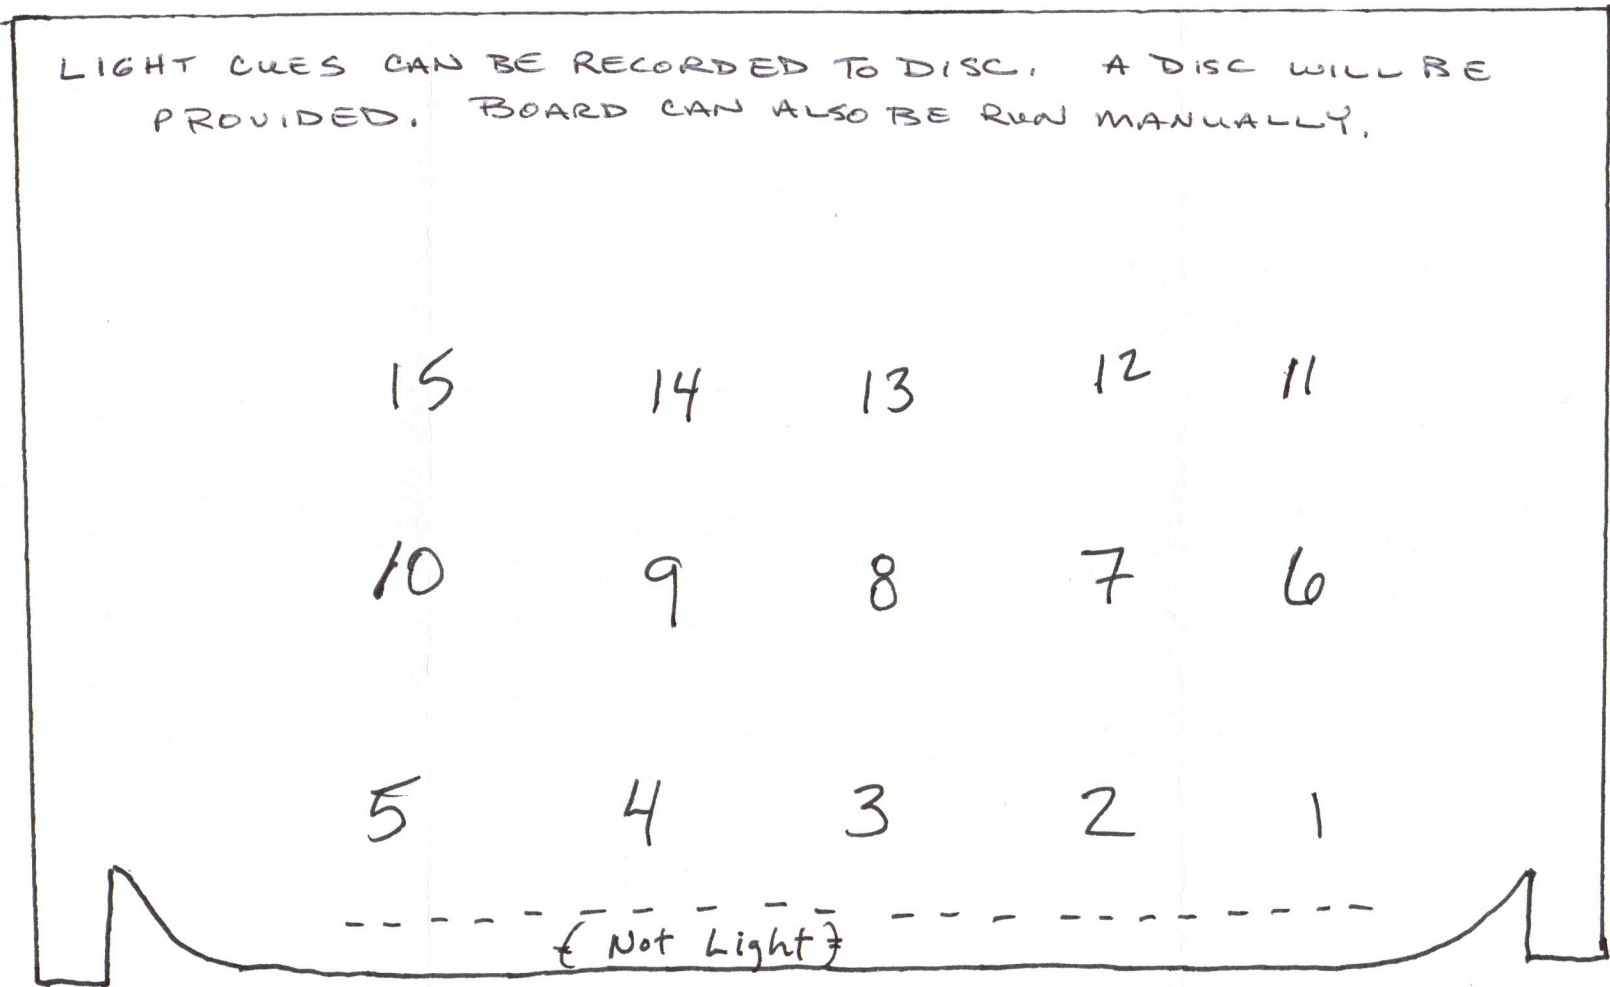 LIGHT CUES CAN BE RECORDED TO DISC. A DISC WILL BE
PROVIDED. BOARD CAN ALSO BE RUN MANUALLY.
15 14 13 12 11
10 9 8 7 6
5 4 3 2 1
{ Not Light }